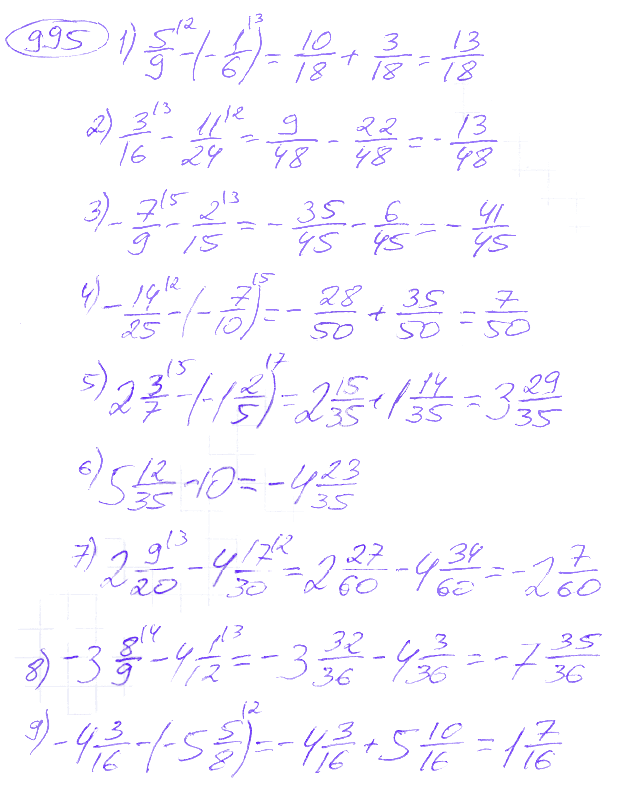 995 1) 5/9^2 - (-1/6)^3 = 10/18 + 3/18 = 13/18
2) 3/16^3 - 11/24^2 = 9/48 - 22/48 = -13/48
3) -7/9^5 - 2/15^3 = -35/45 - 6/45 = -41/45
4) -14/25^2 - (-7/10)^5 = -28/50 + 35/50 = 7/50
5) 2 3/7^5 - (-1 2/5)^7 = 2 15/35 + 1 14/35 = 3 29/35
6) 5 12/35 - 10 = -4 23/35
7) 2 9/20^3 - 4 17/30^2 = 2 27/60 - 4 34/60 = -2 7/60
8) -3 8/9^4 - 4 1/12^3 = -3 32/36 - 4 3/36 = -7 35/36
9) -4 3/16 - (-5 5/8)^2 = -4 3/16 + 5 10/16 = 1 7/16